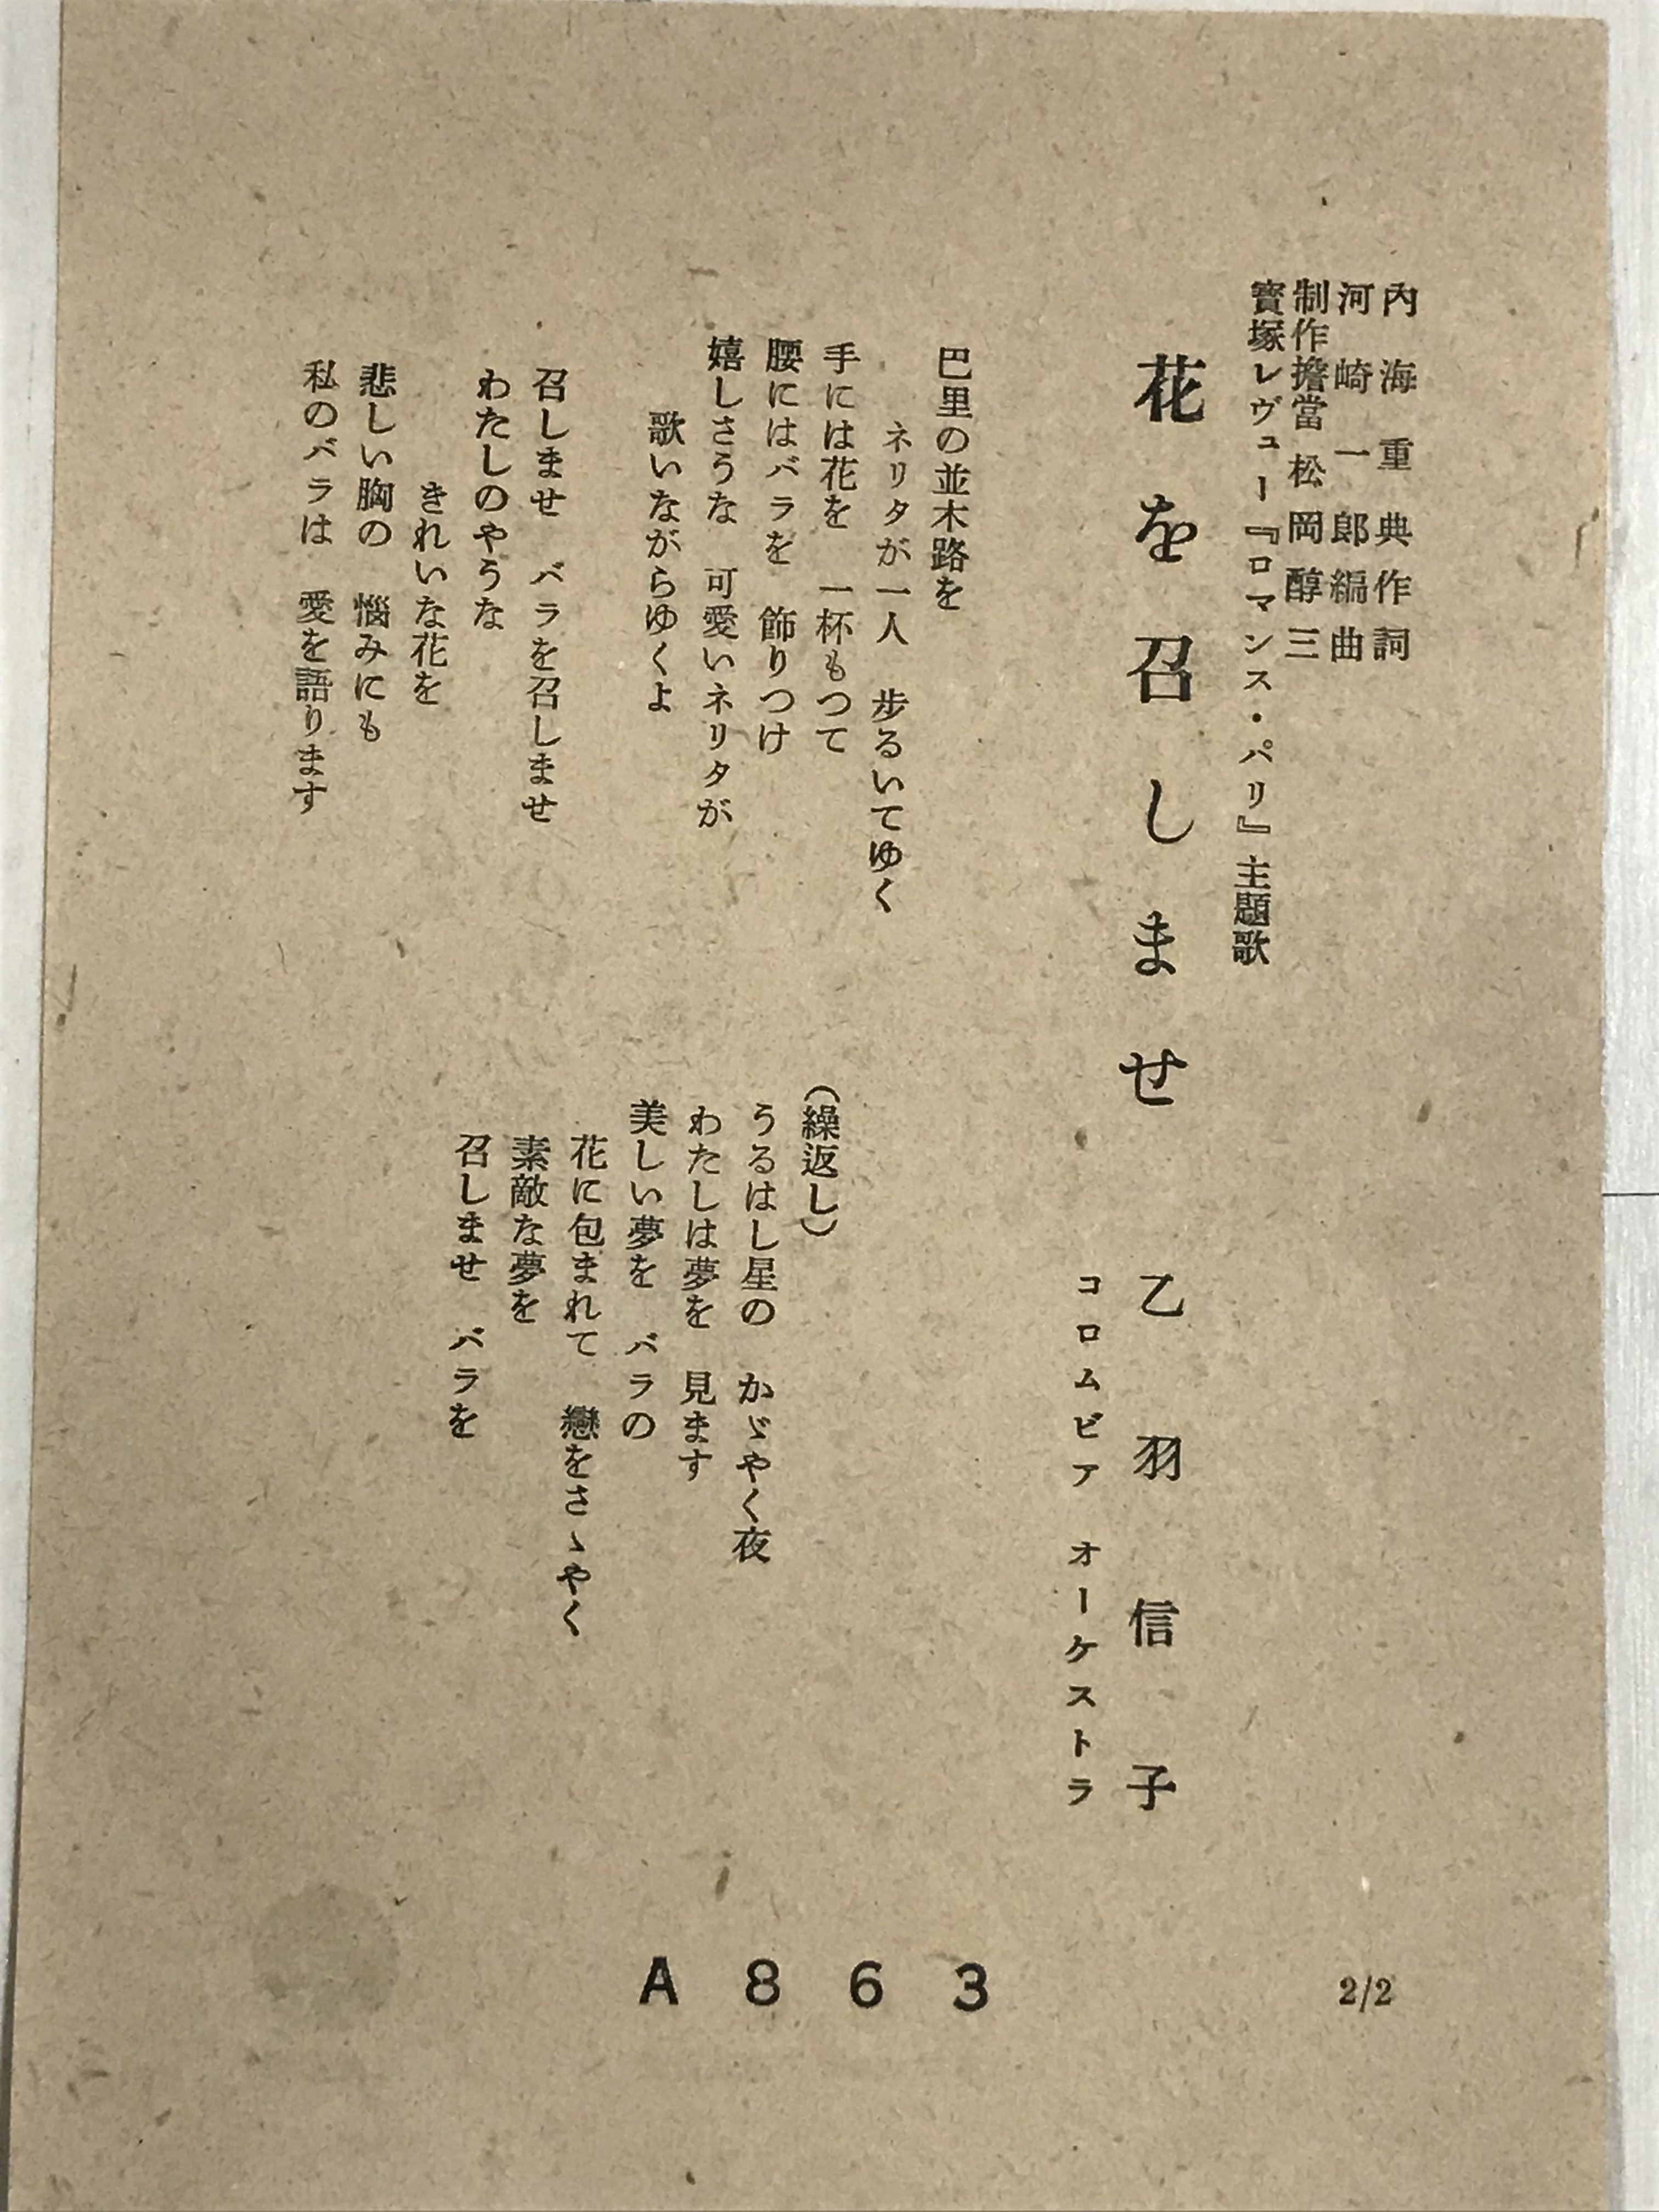 內海重典作詞
河崎一郎編曲
制作擔當 松岡醇三
寳塚レヴュー『ロマンス・パリ』主題歌
花を召しませ
乙羽信子
コロムビア オーケストラ
巴里の並木路を
ネリタが一人 歩るいてゆく
手には花を 一杯もつて
腰にはバラを 飾りつけ
嬉しさうな 可愛いネリタが
歌いながらゆくよ
召しませ バラを召しませ
わたしのやうな
きれいな花を
悲しい胸の 惱みにも
私のバラは 愛を語ります
(繰返し)
うるはし星の かゞやく夜
わたしは夢を 見ます
美しい夢を バラの
花に包まれて 戀をさゝやく
素敵な夢を
召しませ バラを
A863
2/2